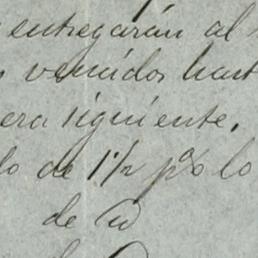 entregarán al
vencidos hast
era siguiente.
lo de 1½ p% lo
de Ud